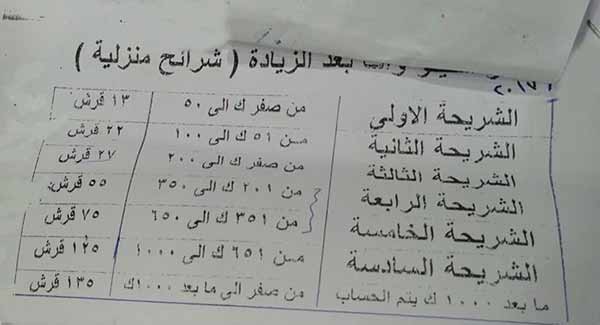 بعد الزيادة ( شرائح منزلية )
٢٠١٧
الشريحة الاولي من صفر ك الى ٥٠ ١٣ قرش
الشريحة الثانية من ٥١ ك الى ١٠٠ ٢٢ قرش
الشريحة الثالثة من صفر ك الى ٢٠٠ ٢٧ قرش
الشريحة الرابعة من ٢٠١ ك الى ٣٥٠ ٥٥ قرش
الشريحة الخامسة من ٣٥١ ك الى ٦٥٠ ٧٥ قرش
الشريحة السادسة من ٦٥١ ك الى ١٠٠٠ ١٢٥ قرش
ما بعد ١٠٠٠ ك يتم الحساب من صفر الى ما بعد ١٠٠٠ك ١٣٥ قرش